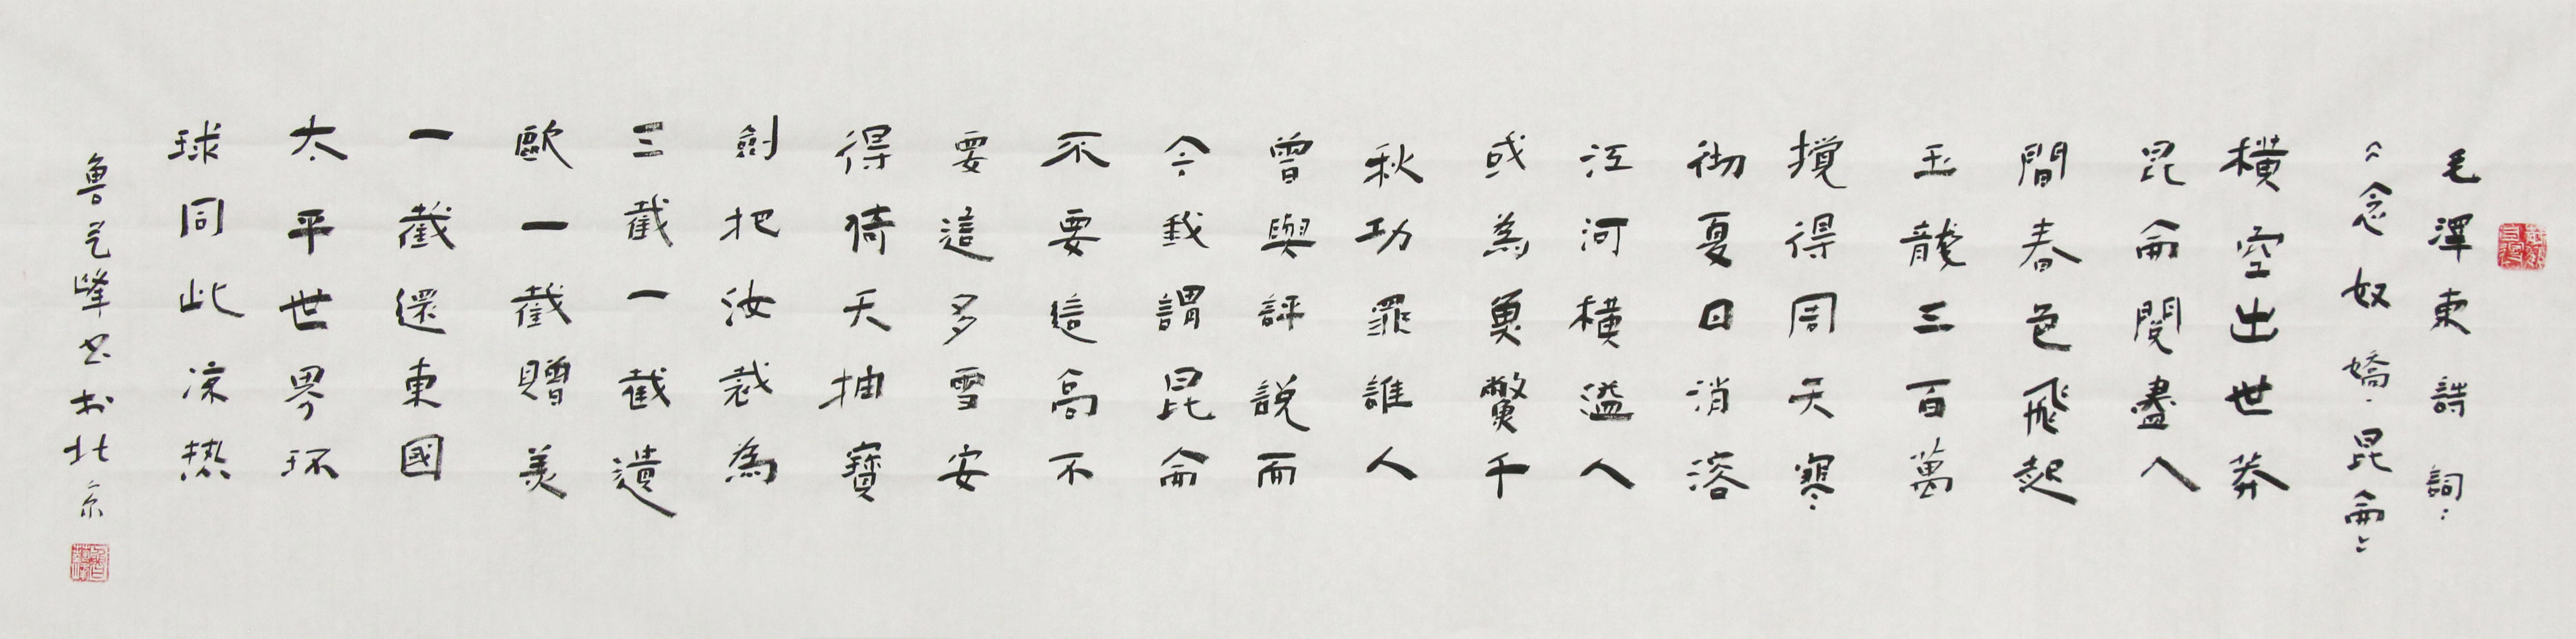 毛澤東詩詞：
《念奴嬌·昆侖》
橫空出世莽
昆侖閱盡人
間春色飛起
玉龍三百萬
攪得周天寒
彻夏日消溶
江河橫溢人
或為魚鱉千
秋功罪誰人
曾與評說而
今我謂昆侖
不要這高不
要這多雪安
得倚天抽寶
劍把汝裁為
三截一截遺
歐一截贈美
一截還東國
太平世界环
球同此凉热
魯峰书於北京